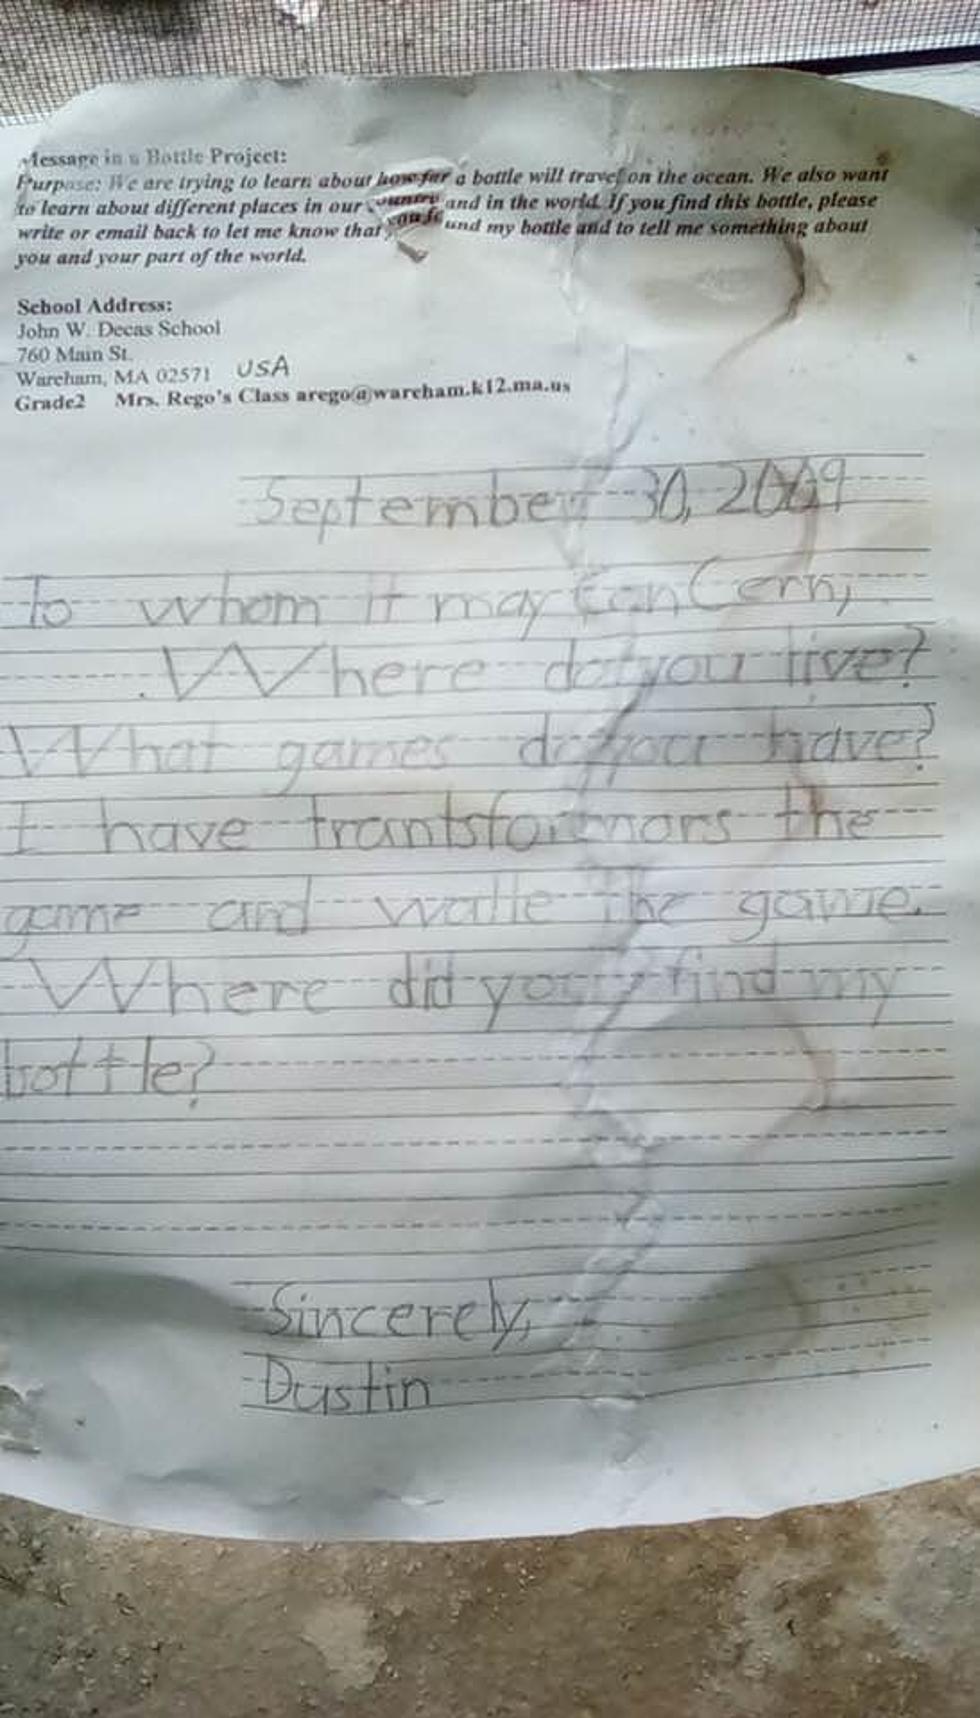 Message in a Bottle Project:
Purpose: We are trying to learn about how far a bottle will travel on the ocean. We also want
to learn about different places in our country and in the world. If you find this bottle, please
write or email back to let me know that you found my bottle and to tell me something about
you and your part of the world.
School Address:
John W. Decas School
760 Main St.
Wareham, MA 02571 USA
Grade2 Mrs. Rego's Class arego@wareham.k12.ma.us
September 30, 2009
To whom it may ConCern,
Where do you live?
What games do you have?
I have trantsformors the
game and walle the game.
Where did you find my
bottle?
Sincerely,
Dustin